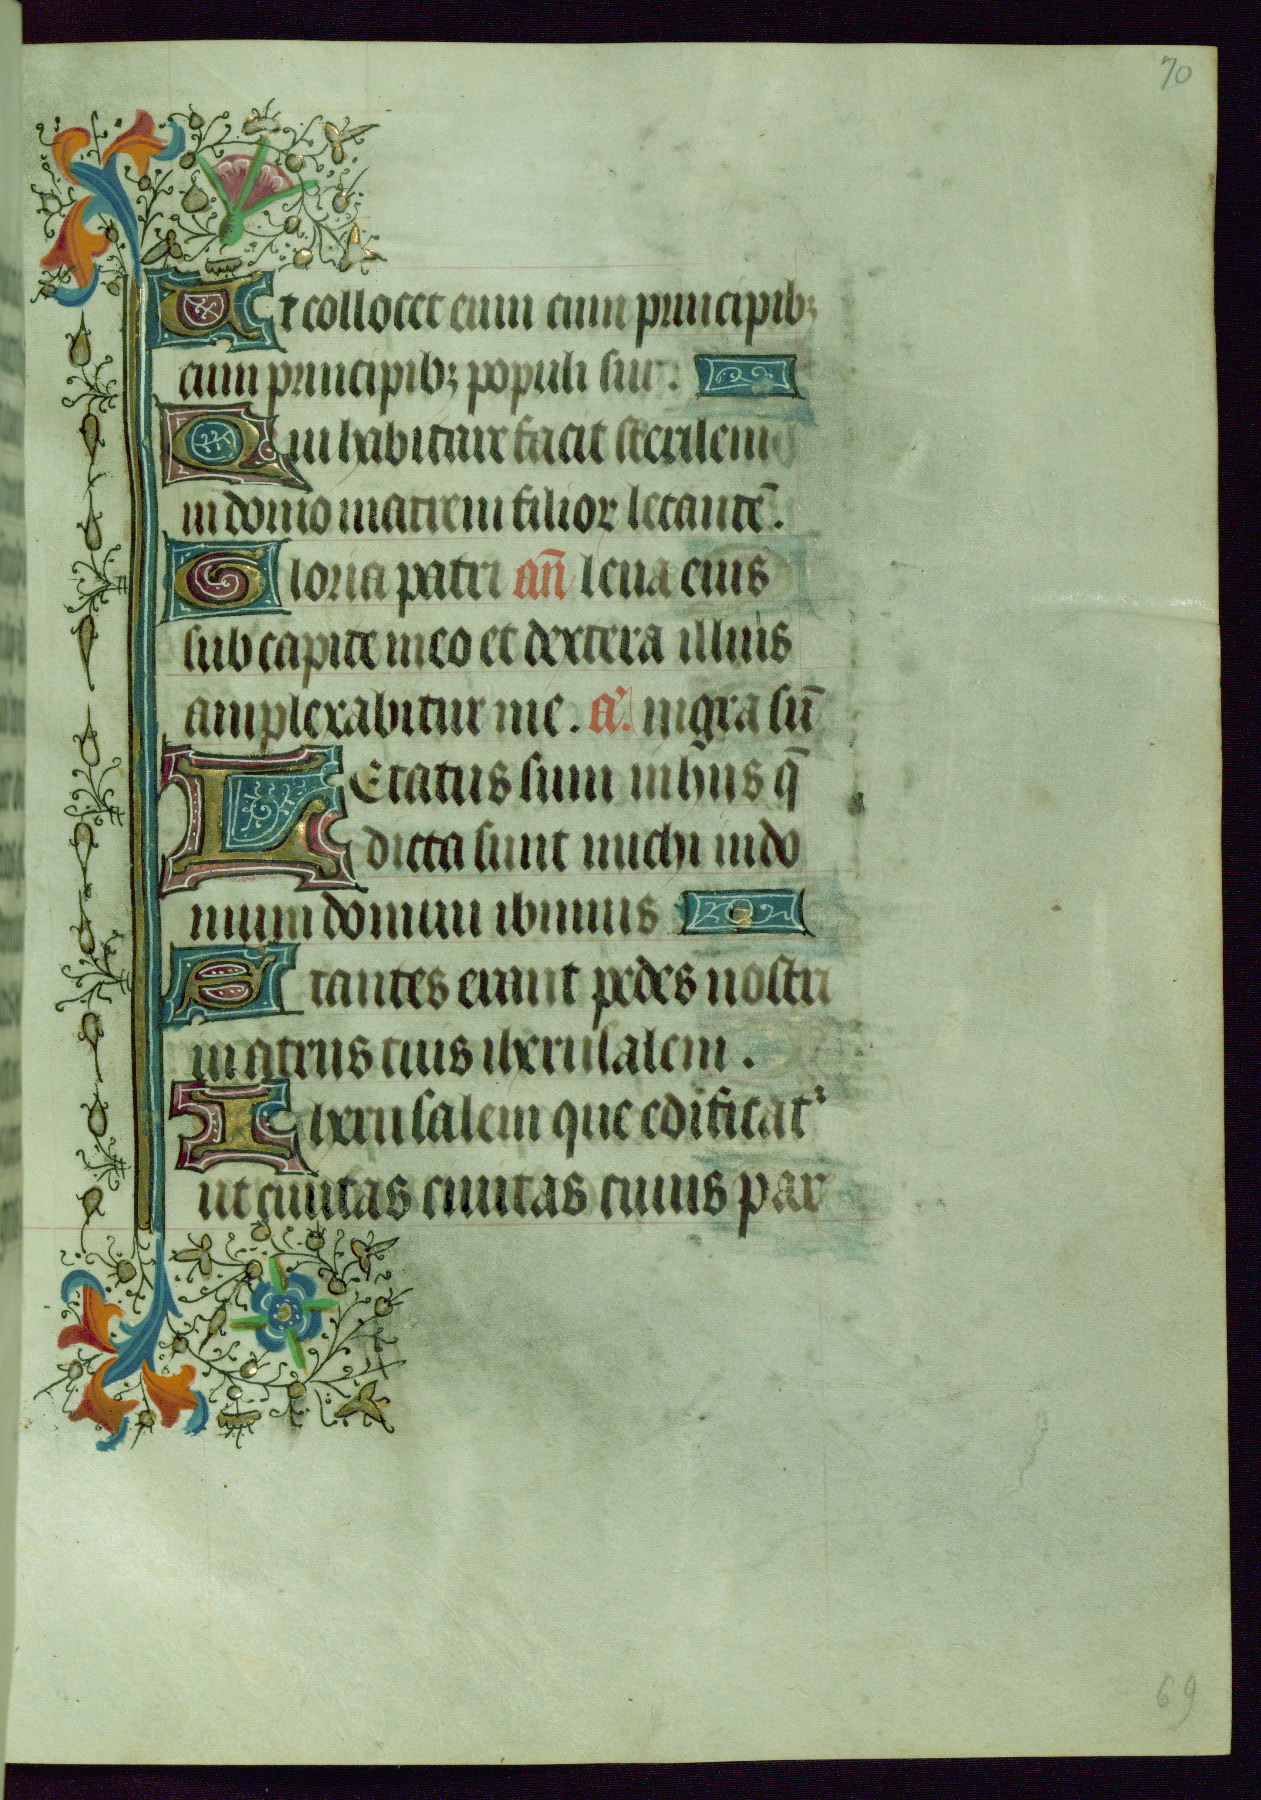 70
Ut collocet eum cum principib;
cum principib; populi sui.
Qui habitare facit sterilem
in domo matrem filior letantē.
Gloria patri an̄ leua eius
sub capite meo et dextera illius
amplexabitur me. a'. nigra sū
LEtatus sum in hiis q̄
dicta sunt michi in do
mum domini ibimus
Stantes erant pedes nostri
in atriis tuis iherusalem.
Iherusalem que edificat'
ut ciuitas ciuitas cuius par
69